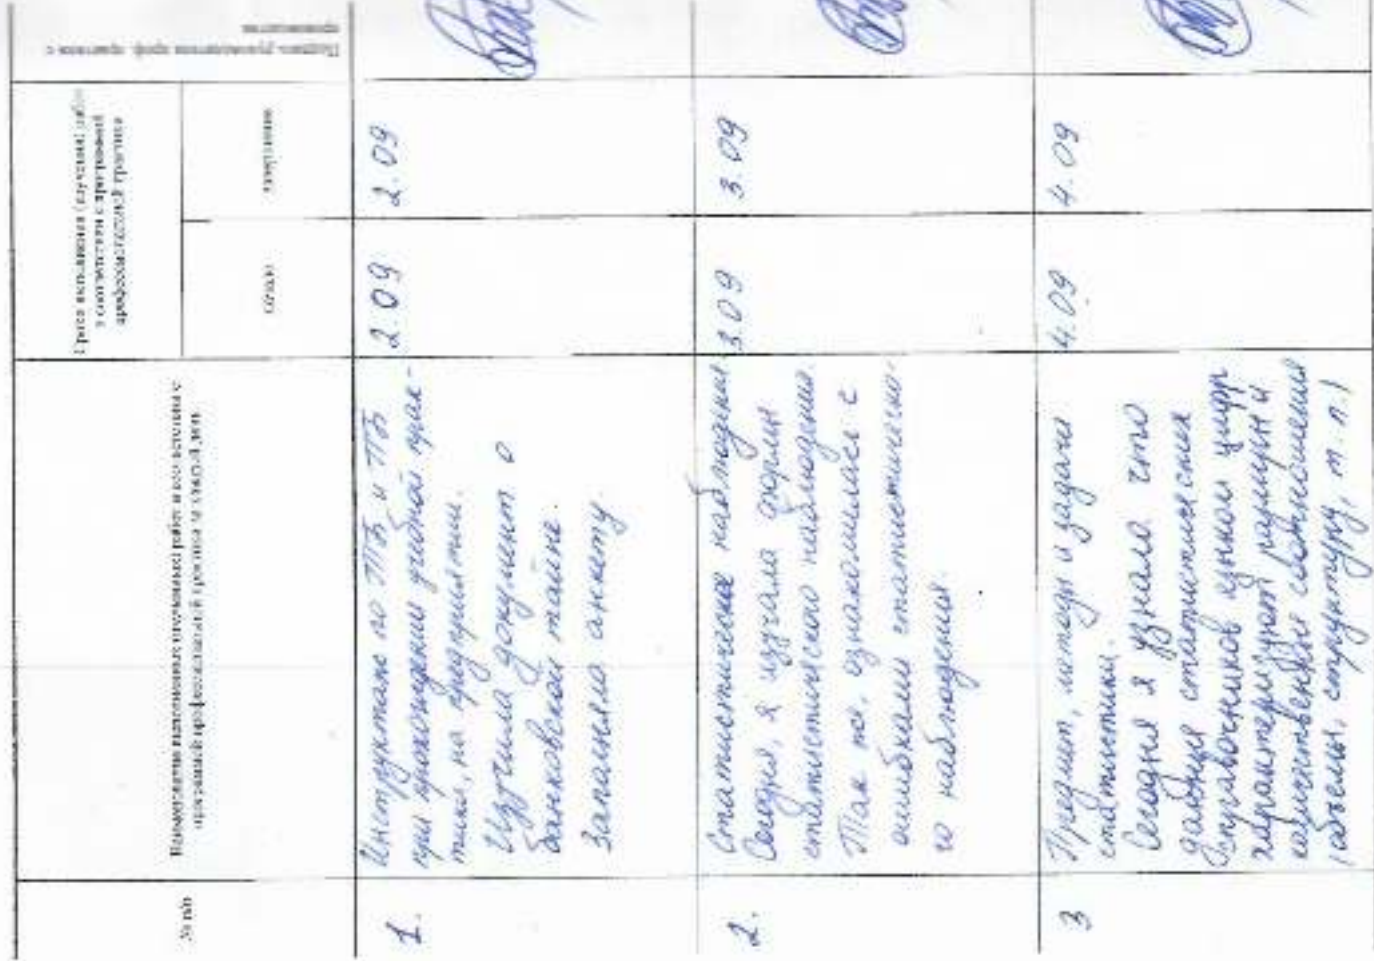 № п/п
Наименование выполненных (изученных) работ в соответствии с
программой профессиональной практики за каждый день
Сроки выполнения (изучения) работ
в соответствии с программой
профессиональной практики
начало
завершение
Подпись руководителя проф. практики с
производства
1.
Инструктаж по ТБ и ПБ
при прохождении учебной прак-
тики, на предприятии.
Изучила документ о
банковской тайне.
Заполняла анкету.
2.09
2.09
2.
Статистическое наблюдения
Сегодня, я изучала формы
статистического наблюдения.
Так же. ознакомилась с
ошибками статистическо-
го наблюдения.
3.09
3.09
3
Предмет, методы и задачи
статистики.
Сегодня я узнала что
данные статистических
справочников языком цифр
характеризуют
количественные соотношения
(объемы, структуру, т.п.)
4.09
4.09